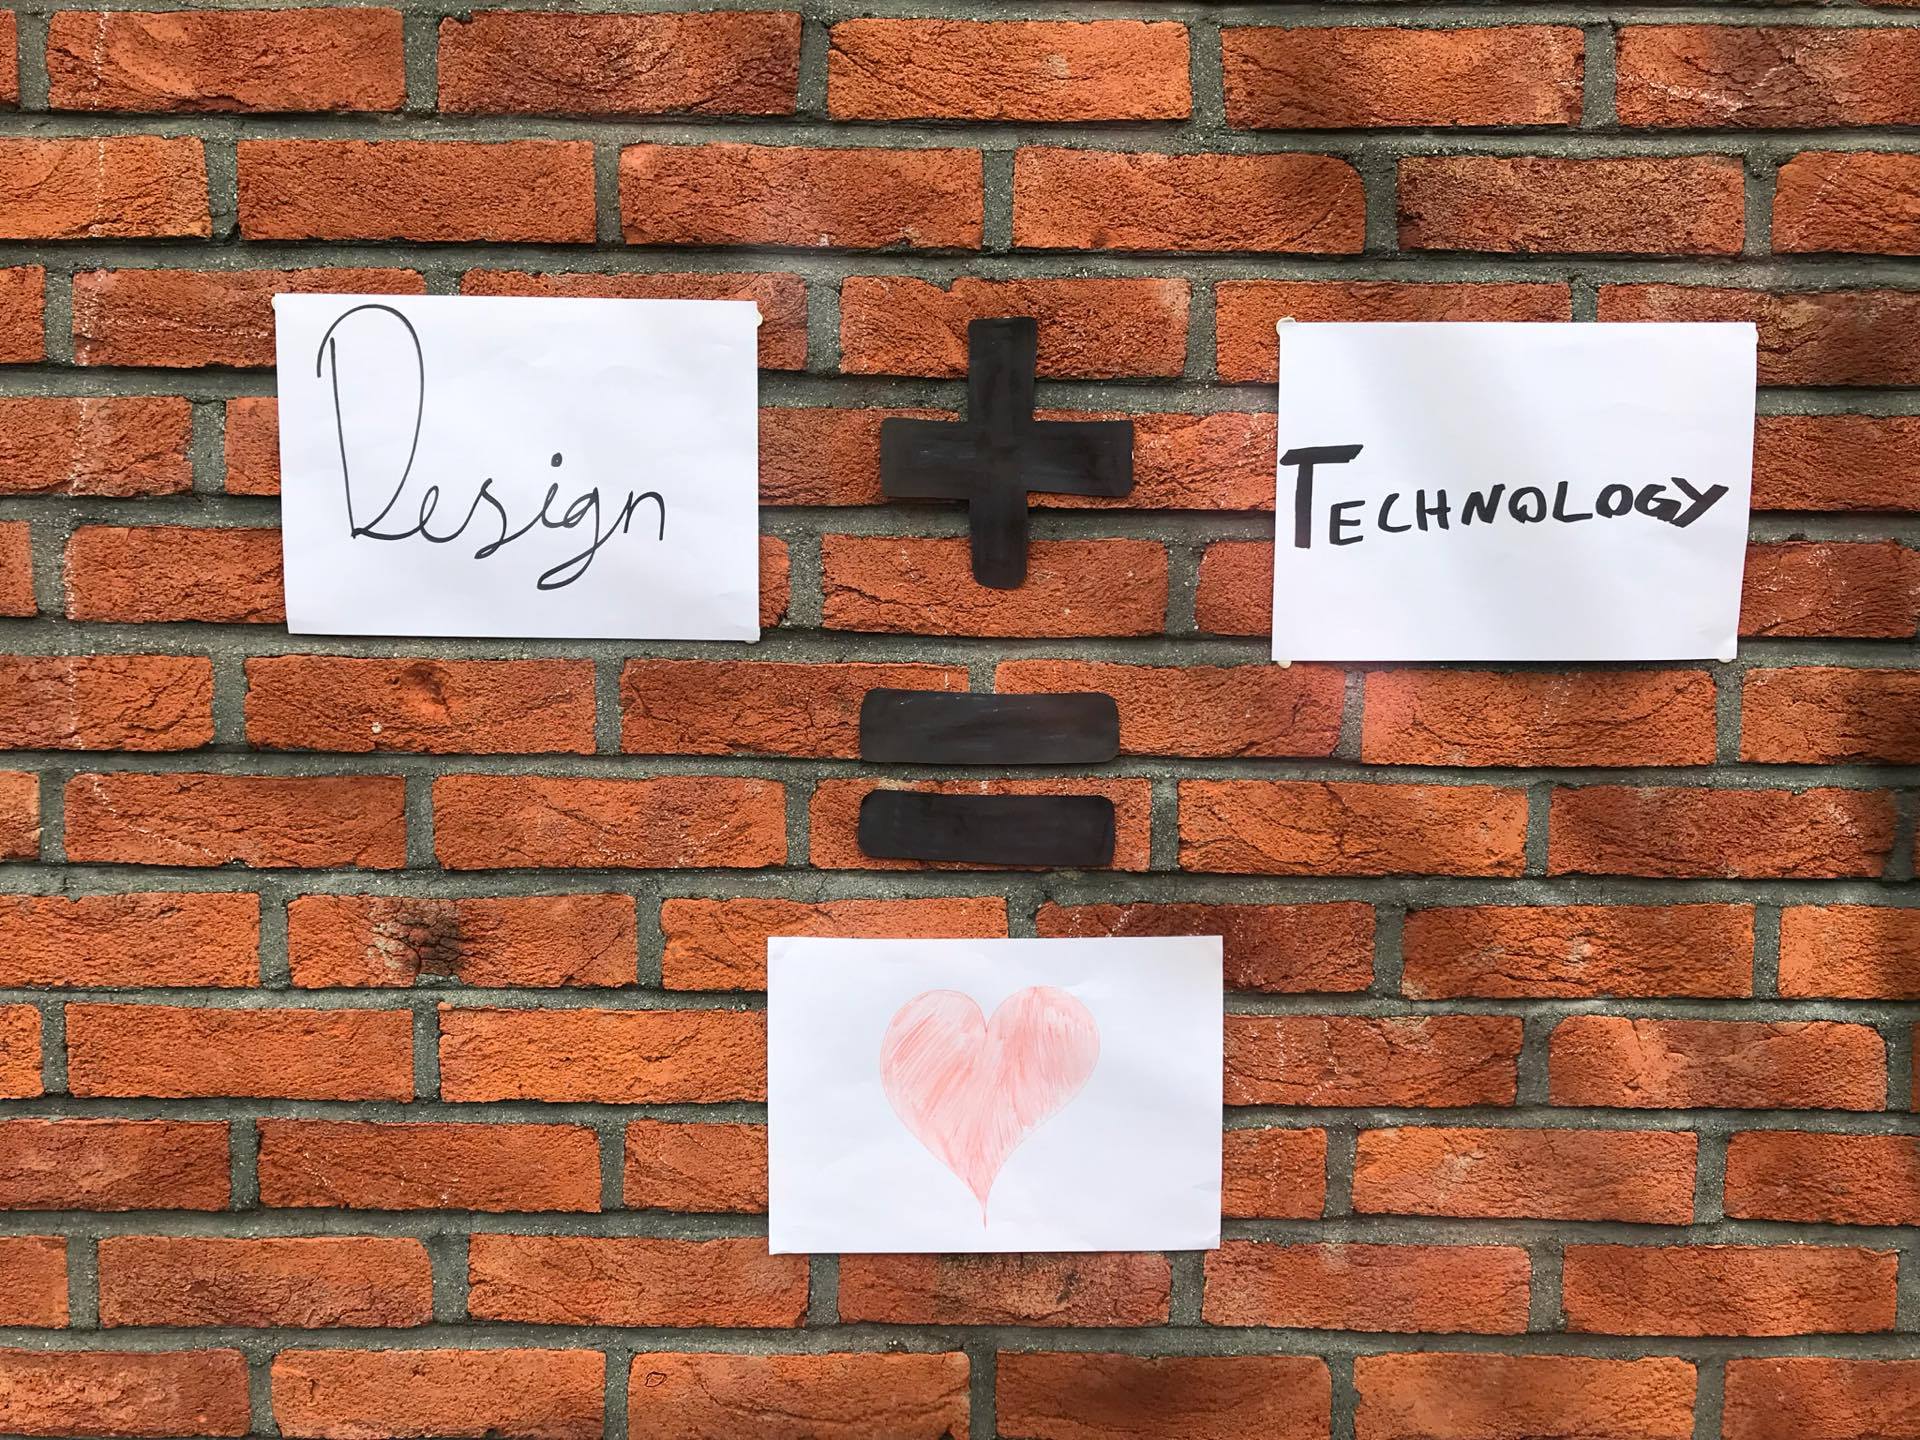 Design + TECHNOLOGY
=